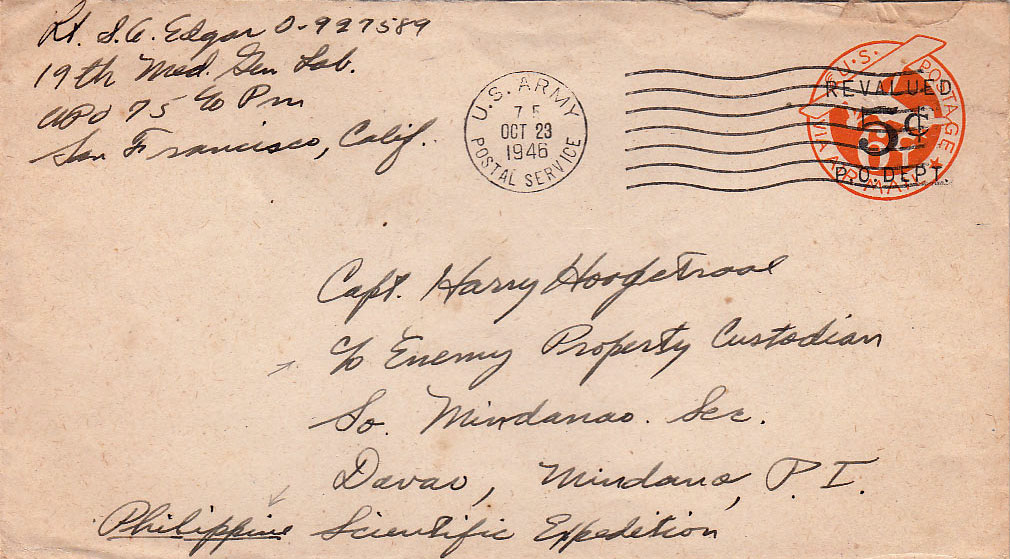 Lt. S.A. Edgar O-927589
19th Med. Gen Lab.
APO 75 % Pm
San Francisco, Calif.
U.S. ARMY
75
OCT 23
1946
POSTAL SERVICE
U.S. POSTAGE
REVALUED
5¢
6¢
P.O. DEPT.
VIA AIR MAIL
Capt. Harry Hoogstraal
c/o Enemy Property Custodian
So. Mindanao. Sec.
Davao, Mindanao, P. I.
Philippine Scientific Expedition